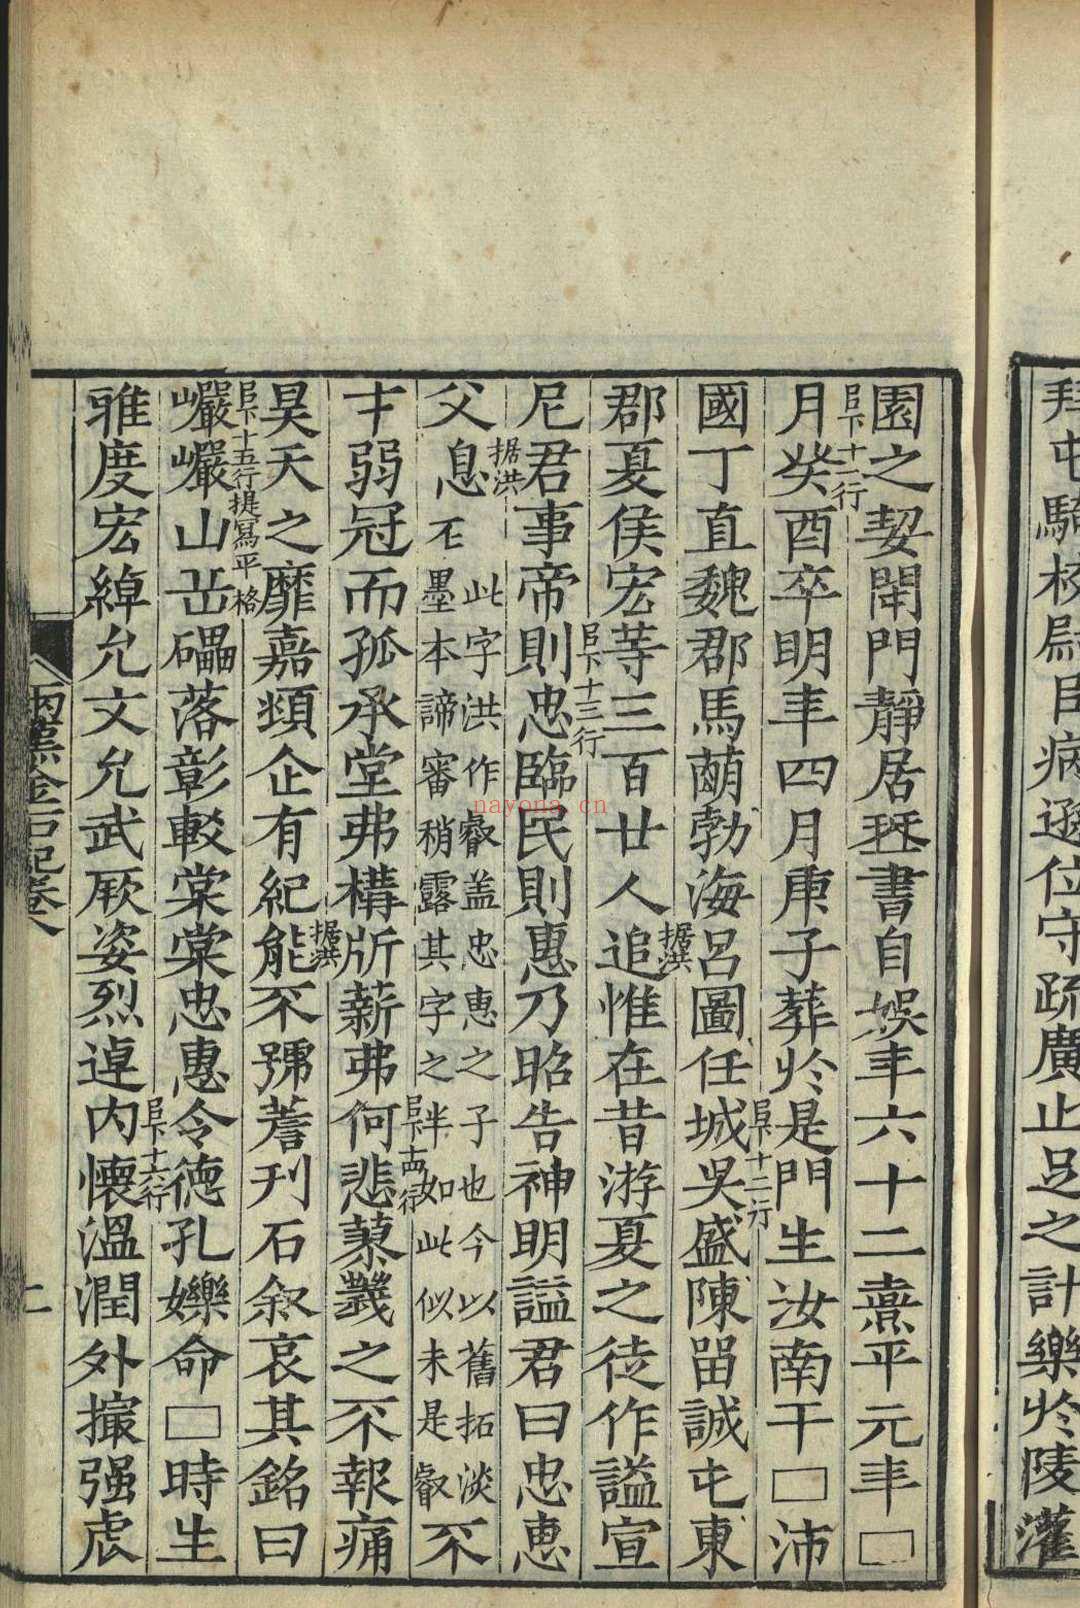 拜屯騎校尉臣病遜位守疏廣止足之計樂於陵灌
園之契閈門靜居琴書自娛年六十二熹平元年□
月癸酉卒明年四月庚子葬於是門生汝南干□沛
㠯下十一行
國丁直魏郡馬萌勃海呂圖任城吳盛陳留誠屯東
㠯下十二行
郡夏侯宏等三百廿人追惟在昔游夏之徒作謚宣
据洪
尼君事帝則忠臨民則惠乃昭告神明謚君曰忠惠
㠯下十三行
父息不
此字洪作叡盖忠惠之子也今以舊拓淡
墨本諦審稍露其字之半如此似未是叡
据洪
才弱冠而孤承堂弗構斨薪弗何悲蓼義之不報痛
㠯下十四行
昊天之靡嘉頫企有紀能不號嗟刊石叙哀其銘曰
据洪
巖巖山岳礧落彰較棠棠忠惠令德孔爍命□時生
㠯下十五行提寫平格
雅度宏綽允文允武厥姿烈逴内懷溫潤外撮强虐
㠯下十六行
兩漢金石記卷八
nayona.cn